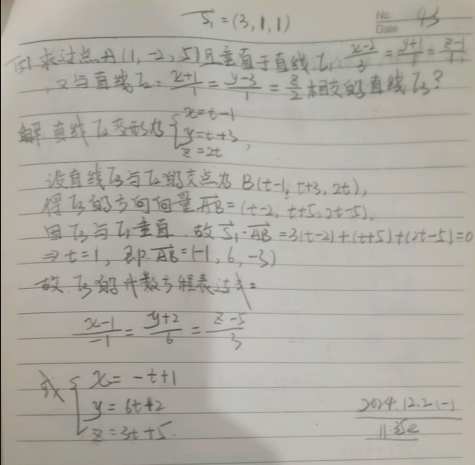 S₁=(3,1,1)
No. 43
Date
(5) 求过点A(1,-2,5)且垂直于直线L₁: (x-2)/3 = (y+1)/1 = (z-1)/1,
又与直线L₂: (x+1)/1 = (y-3)/1 = z/2 相交的直线L₃?
解 直线L₂变形为 { x=t-1
y=t+3,
z=2t
设直线L₃与L₂的交点为 B(t-1, t+3, 2t),
得L₃的方向向量AB=(t-2, t+5, 2t-5),
因L₃与L₁垂直. 故 S₁·AB=3(t-2)+(t+5)+(2t-5)=0
⇒ t=1, 即AB=(-1, 6, -3)
故 L₃的 代数方程表达式=
(x-1)/-1 = (y+2)/6 = (z-5)/3
或 { x = -t+1
y = 6t+2
z = 3t+5.
2024.12.2(-)